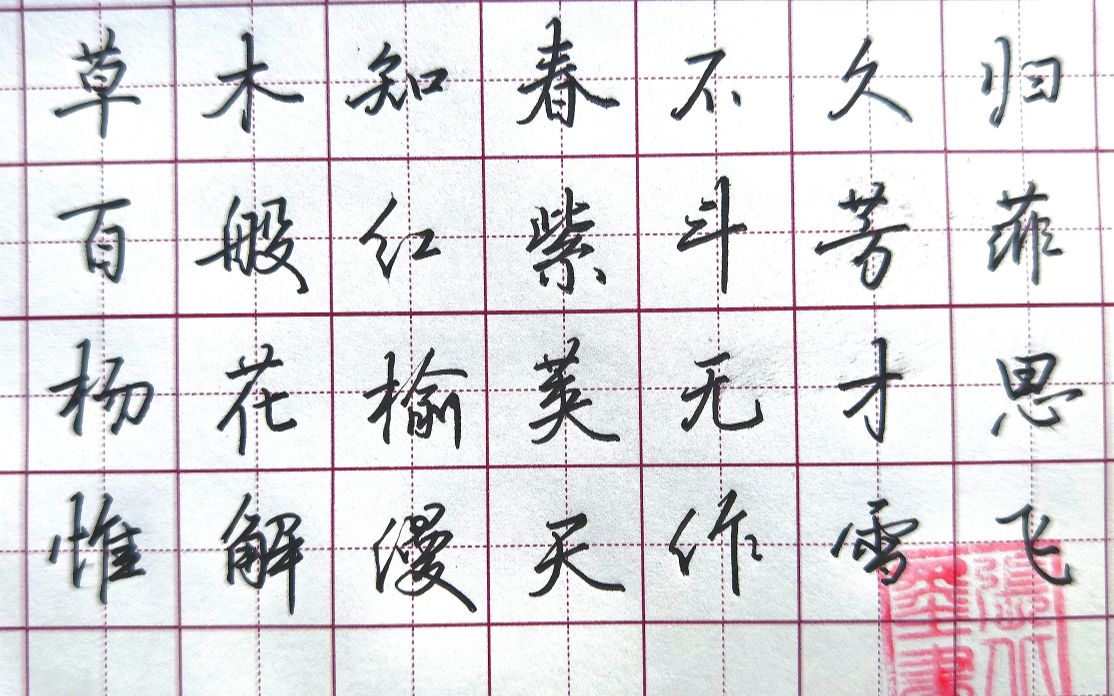 草木知春不久归
百般红紫斗芳菲
杨花榆荚无才思
惟解漫天作雪飞